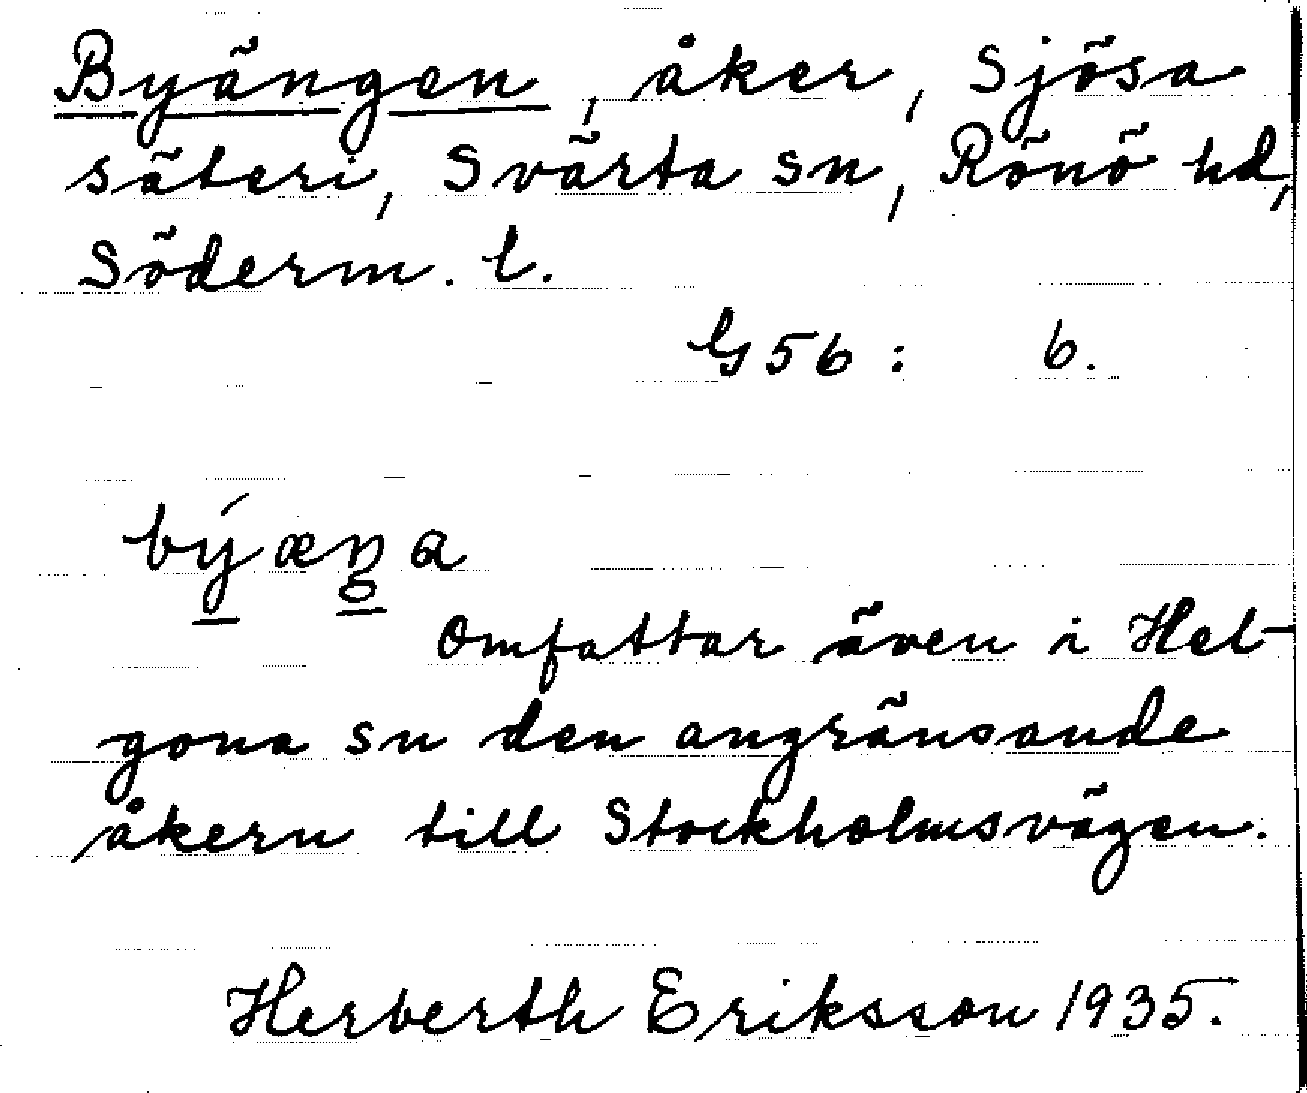 Byängen, åker, Sjösa
säteri, Svärta sn, Rönö hd,
Söderm. l.
G 56 : 6.
býæŋa
Omfattar även i Hel-
gona sn den angränsande
åkern till Stockholmsvägen.
Herberth Eriksson 1935.